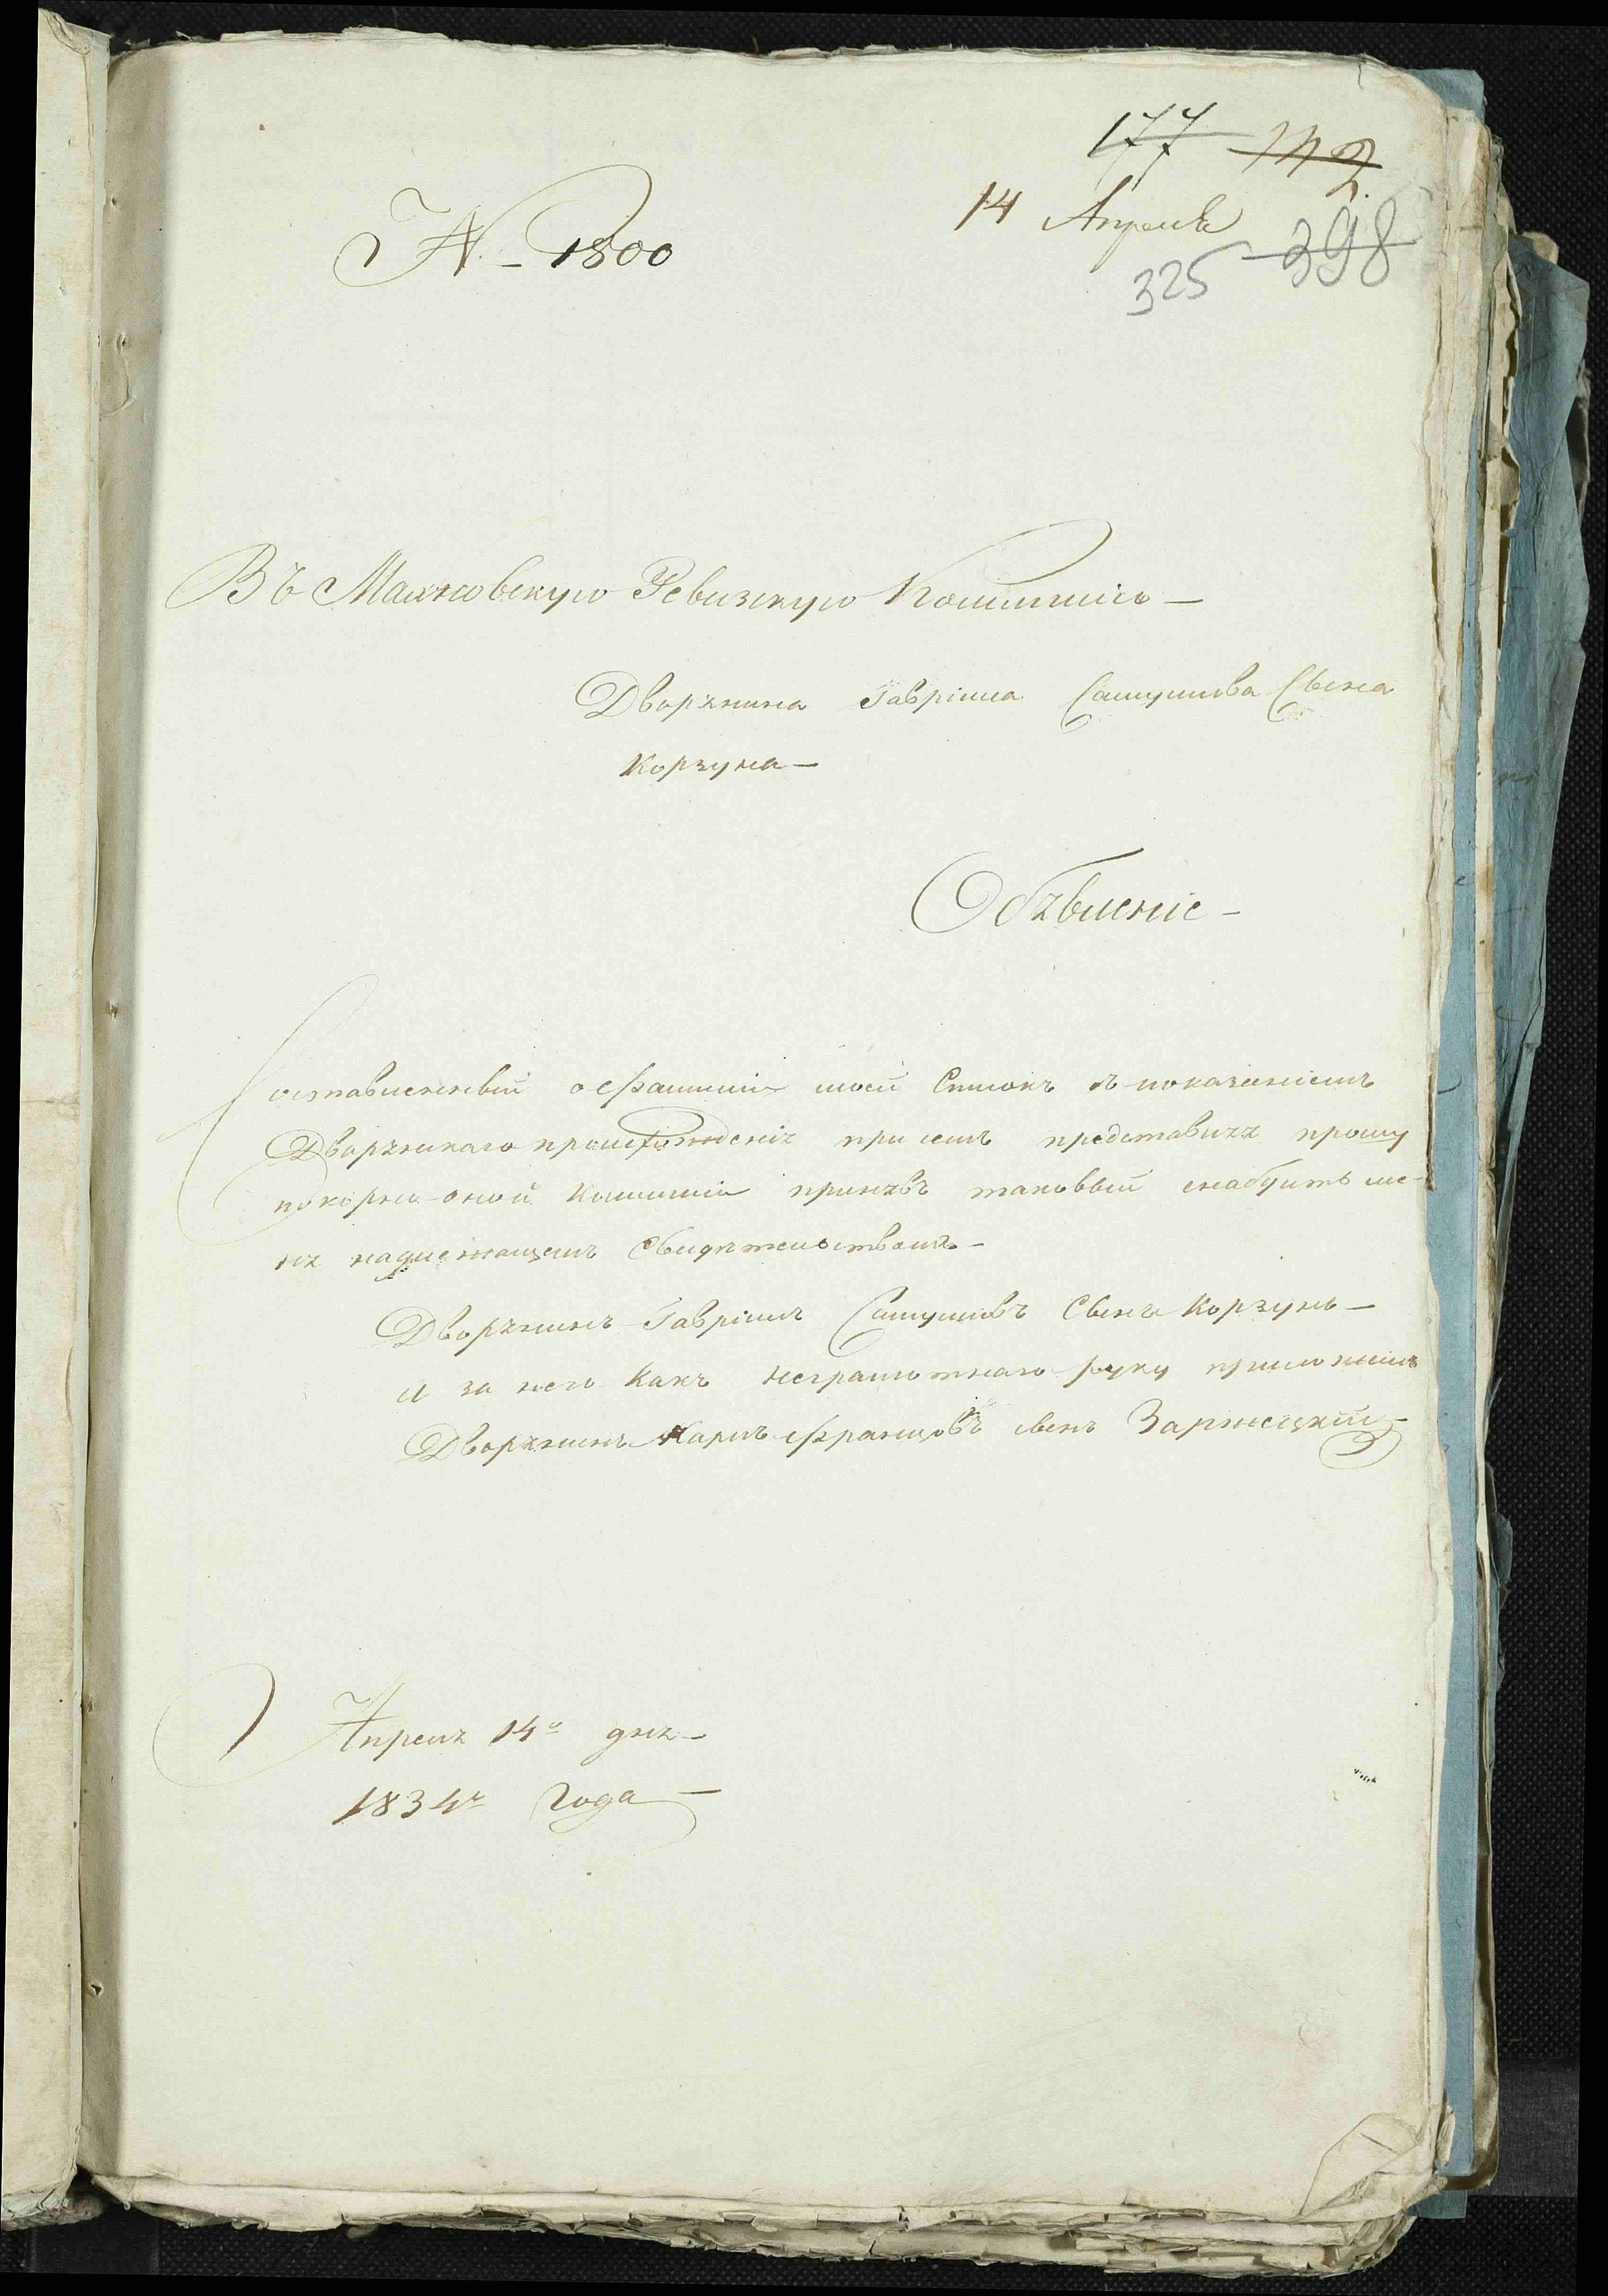 177 142
14 Апреля
№ 1800
325 398
Въ Махновскую Ревизкую Коммисію
Дворянина Гавріила Самуилова Сына
Корзуна
Объявленіе
Составленный о фамиліи моей Списокъ съ показаніемъ
Дворянскаго происхожденія при семъ представляя прошу
покорно оной Коммисіи принявъ таковый снабдить ме-
ня надлежащемъ Свидѣтельствомъ
Дворянинъ Гавріилъ Самуиловъ Сынъ Корзунъ
А за него какъ неграмотнаго руку приложилъ
Дворянинъ Карлъ Францовъ сынъ Заржецкий
Апреля 14о дня
1834го Года